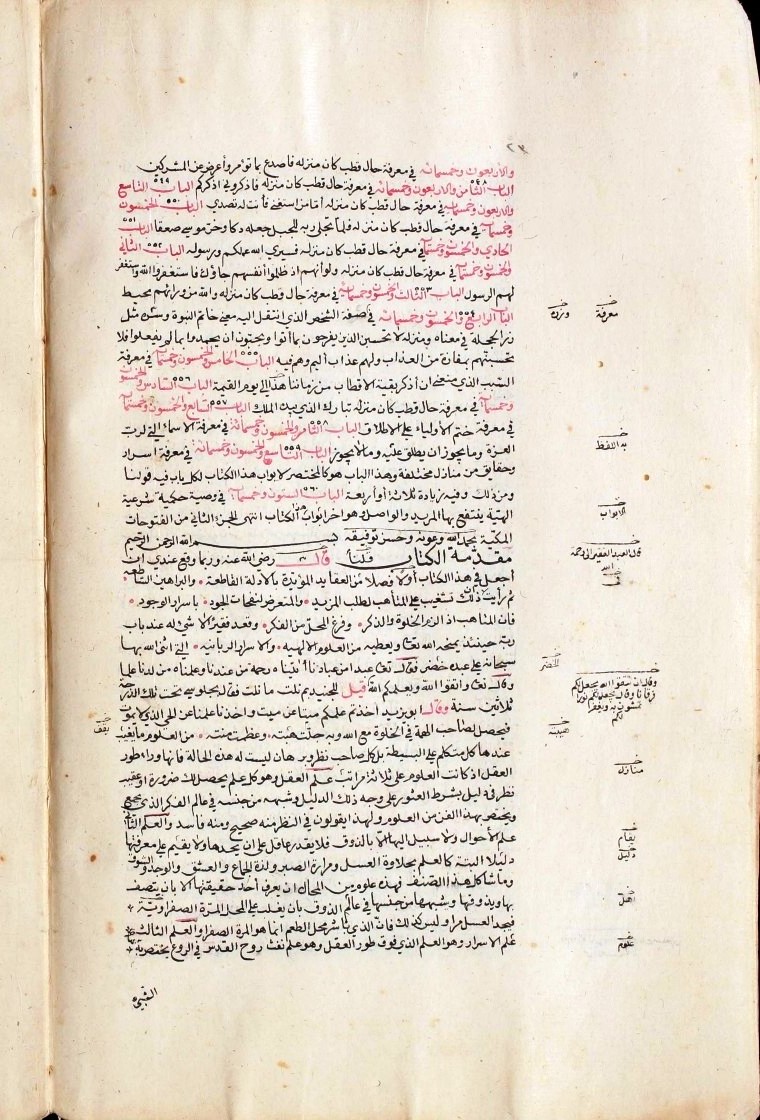 والأربعون وخمسمائة في معرفة حال قطب كان منزله فاصدع بما تؤمر وأعرض عن المشركين
الباب الثامن والأربعون وخمسمائة في معرفة حال قطب كان منزله فاذكروني أذكركم الباب ٥٤٩ التاسع
والأربعون وخمسمائة في معرفة حال قطب كان منزله أما من استغنى فأنت له تصدى الباب ٥٥٠ الخمسون
وخمسمائة في معرفة حال قطب كان منزله فلما تجلى ربه للجبل جعله دكا وخر موسى صعقا الباب ٥٥١
الحادي والخمسون وخمسمائة في معرفة حال قطب كان منزله فسيرى الله عملكم ورسوله الباب ٥٥٢ الثاني
والخمسون وخمسمائة في معرفة حال قطب كان منزله ولو أنهم إذ ظلموا أنفسهم جاؤك فاستغفروا الله واستغفر
لهم الرسول الباب ٥٥٣ الثالث والخمسون وخمسمائة في معرفة حال قطب كان منزله والله من ورائهم محيط
الباب ٥٥٤ الرابع والخمسون وخمسمائة في صفة الشخص الذي انتقل إليه معنى خاتم النبوة وسره مثل
زر الحجلة في معناه ومنزله لا تحسبن الذين يفرحون بما أتوا ويحبون أن يحمدوا بما لم يفعلوا فلا
تحسبنهم بمفازة من العذاب ولهم عذاب أليم وهم فيه الباب ٥٥٥ الخامس والخمسون وخمسمائة في معرفة
السبب الذي منعني أن أذكر بقية الأقطاب من زماننا هذا إلى يوم القيمة الباب ٥٥٦ السادس والخمسون
وخمسمائة في معرفة حال قطب كان منزله تبارك الذي بيده الملك الباب ٥٥٧ السابع والخمسون وخمسمائة
في معرفة ختم الأولياء على الإطلاق الباب ٥٥٨ الثامن والخمسون وخمسمائة في معرفة الأسماء التي لرب
العزة وما يجوز أن يطلق عليه وما لا يجوز الباب ٥٥٩ التاسع والخمسون وخمسمائة في معرفة أسرار
وحقايق من منازل مختلفة وهذا الباب هو كالمختصر لأبواب هذا الكتاب لكل باب فيه قولنا
ومن ذلك وفيه زيادة ثلاثة أو أربعة الباب ٥٦٠ الستون وخمسمائة في وصية حكمية شرعية
الهية ينتفع بها المريد والواصل وهو آخر أبواب الكتاب انتهى الجزء الثاني من الفتوحات
المكية بحمد الله وعونه وحسن توفيقه بسم الله الرحمن الرحيم
مقدمة الكتاب قلنا قال رضي الله عنه وربما وقع عندي أن
أجعل في هذا الكتاب أولا فصلا من العقايد المؤيدة بالأدلة القاطعة والبراهين الساطعة
ثم رأيت ذلك تشغيب على المتأهب لطلب المزيد والمتعرض لنفحات الجود بأسرار الوجود
فإن المتأهب إذا لزم الخلوة والذكر وفرغ المحل من الفكر وقعد فقيرا لا شيء له عند باب
ربه حينئذ يمنحه الله تعالى ويعطيه من العلوم الإلهية والأسرار الربانية التي أثنى الله بها
سبحانه على عبده خضر فقال تعالى عبدا من عبادنا آتيناه رحمة من عندنا وعلمناه من لدنا علما
وقال تعالى واتقوا الله ويعلمكم الله قيل للجنيد بم نلت ما نلت فقال بجلوسي تحت تلك الدرجة
ثلاثين سنة وقال أبو يزيد أخذتم علمكم ميتا عن ميت وأخذنا علمنا عن الحي الذي لا يموت
فيحصل لصاحب الهمة في الخلوة مع الله وبه جلت هيبته وعظمت منته من العلوم ما يغيب
عندها كل متكلم على البسيطة بل كل صاحب نظر وبرهان ليست له هذه الحالة فإنها وراء طور
العقل إذ كانت العلوم على ثلاث مراتب علم العقل وهو كل علم يحصل لك ضرورة أو عقيب
نظر في دليل بشرط العثور على وجه ذلك الدليل وشبهه من جنسه في عالم الفكر الذي يجمع
ويختص بهذا الفن من العلوم ولهذا يقولون في النظر منه صحيح ومنه فاسد والعلم الثاني
علم الأحوال ولا سبيل إليها إلا بالذوق فلا يقدر عاقل على أن يحدها ولا يقيم على معرفتها
دليلا البتة كالعلم بحلاوة العسل ومرارة الصبر ولذة الجماع والعشق والوجد والشوق
وما شاكل هذا الصنف فهذه علوم من المحال أن يعرف أحد حقيقتها إلا بأن يتصف
بها ويذوقها وشبهها من جنسها في عالم الذوق بأن يغلب على المحل المرة الصفراوية
فيجد العسل مرا وليس كذلك فإن الذي باشر محل الطعم إنما هو المرة الصفرا والعلم الثالث
علم الأسرار وهو العلم الذي فوق طور العقل وهو علم نفث روح القدس في الروع يختص به
معرفة
وزره
به اللفظ
لأبواب
قال العبد الفقير إلى رحمة
الله
للخضر
وقال إن تتقوا الله يجعل لكم
فرقانا وقال ويجعل لكم نورا
تمشون به ويغفر
لكم
هيبته
يقف
منازل
يقام
دليل
أهل
علوم
النبي